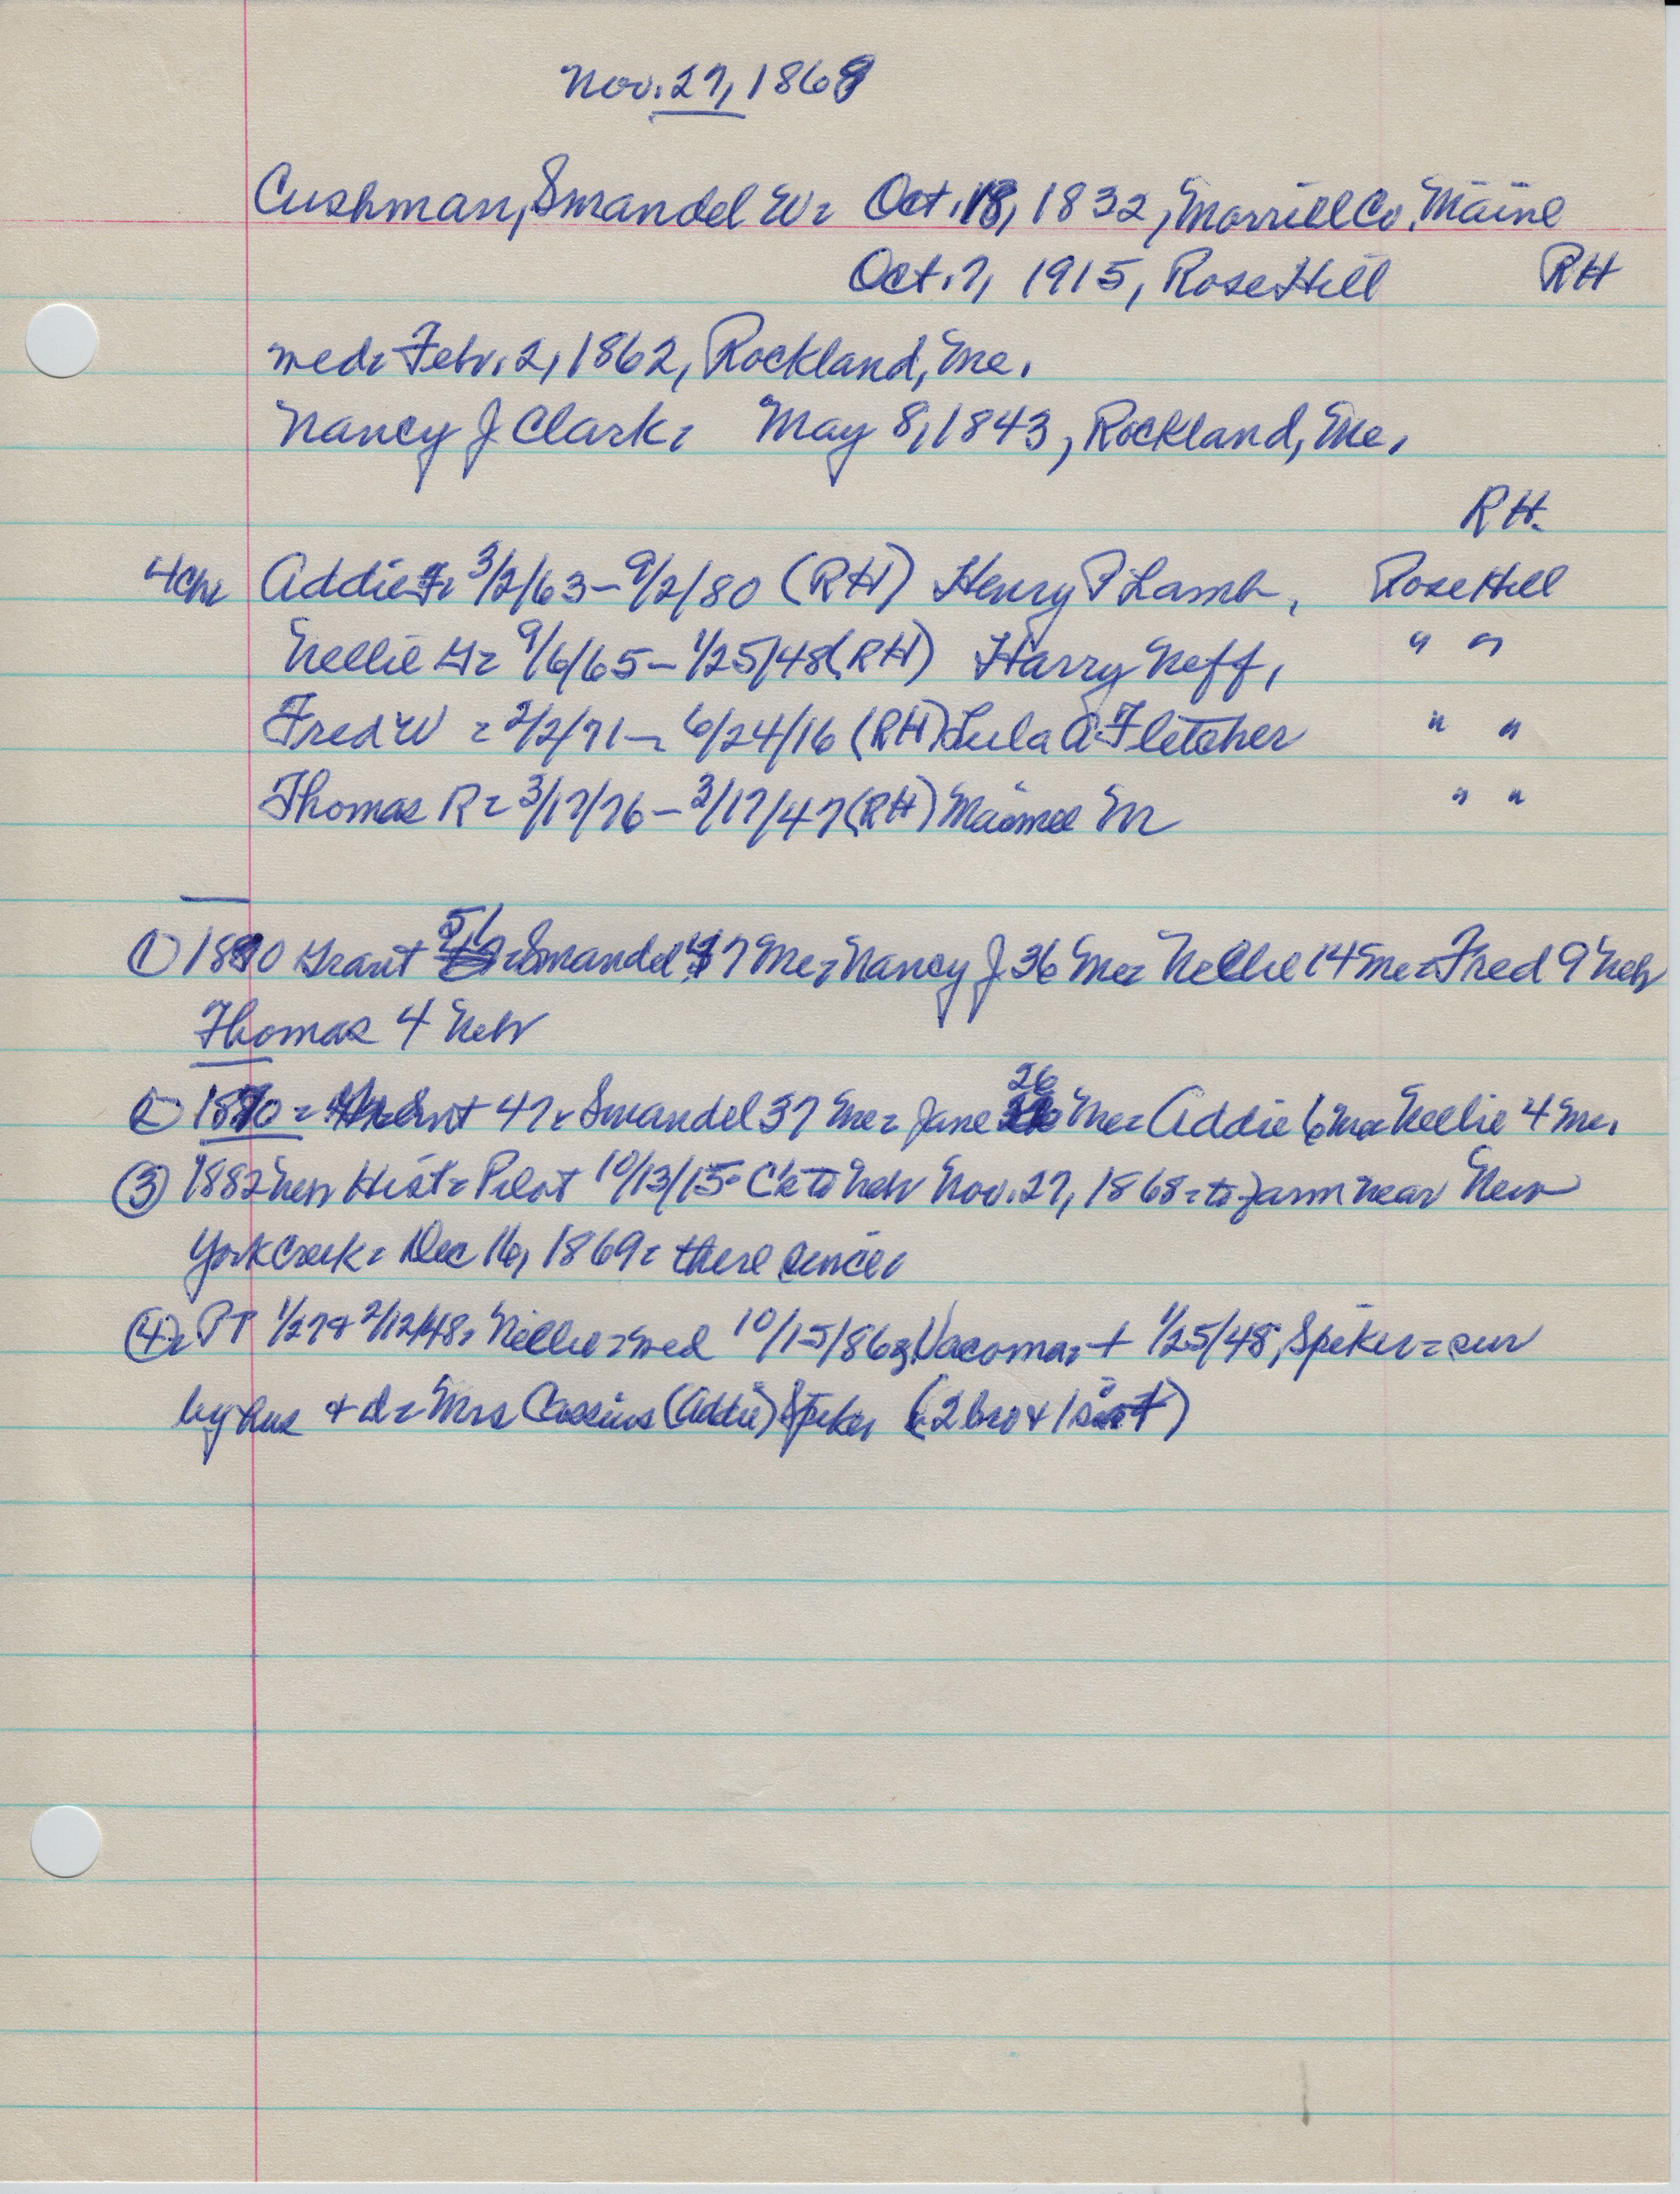 Nov. 27, 1868
Cushman, Smandel W = Oct. 18, 1832, Morrill Co. Maine
Oct. 7, 1915, Rose Hill RH
med = Febr. 2, 1862, Rockland, Me.
Nancy J Clark = May 8, 1843, Rockland, Me.
RH.
4 ch = Addie F = 3/2/63 - 9/2/80 (RH) Henry P Lamb, Rose Hill
Nellie H = 9/6/65 - 1/25/48 (RH) Harry Neff, " "
Fred W = 2/2/71 - 6/24/16 (RH) Lula A Fletcher " "
Thomas R = 3/17/76 - 3/17/47 (RH) M " "
① 1880 Grant 51 = Smandel 47 Me = Nancy J 36 Me = Nellie 14 Me = Fred 9 Neb
Thomas 4 Neb
② 1870 = 47 = Smandel 37 Me = Jane 26 Me = Addie 6 Me = Nellie 4 Me.
③ 1882 Neb Hist = Pilot 10/13/15 = C to Neb Nov. 27, 1868 = to farm near New
York Creek = Dec 16, 1869 = there since.
④ = PT 1/27 & 2/12/48 = Nellie = med 10/15/86 + 1/25/48, Spiker = sur
by hus + d = Mrs Cassius (Addie) Spiker (2 bro & 1 sist)